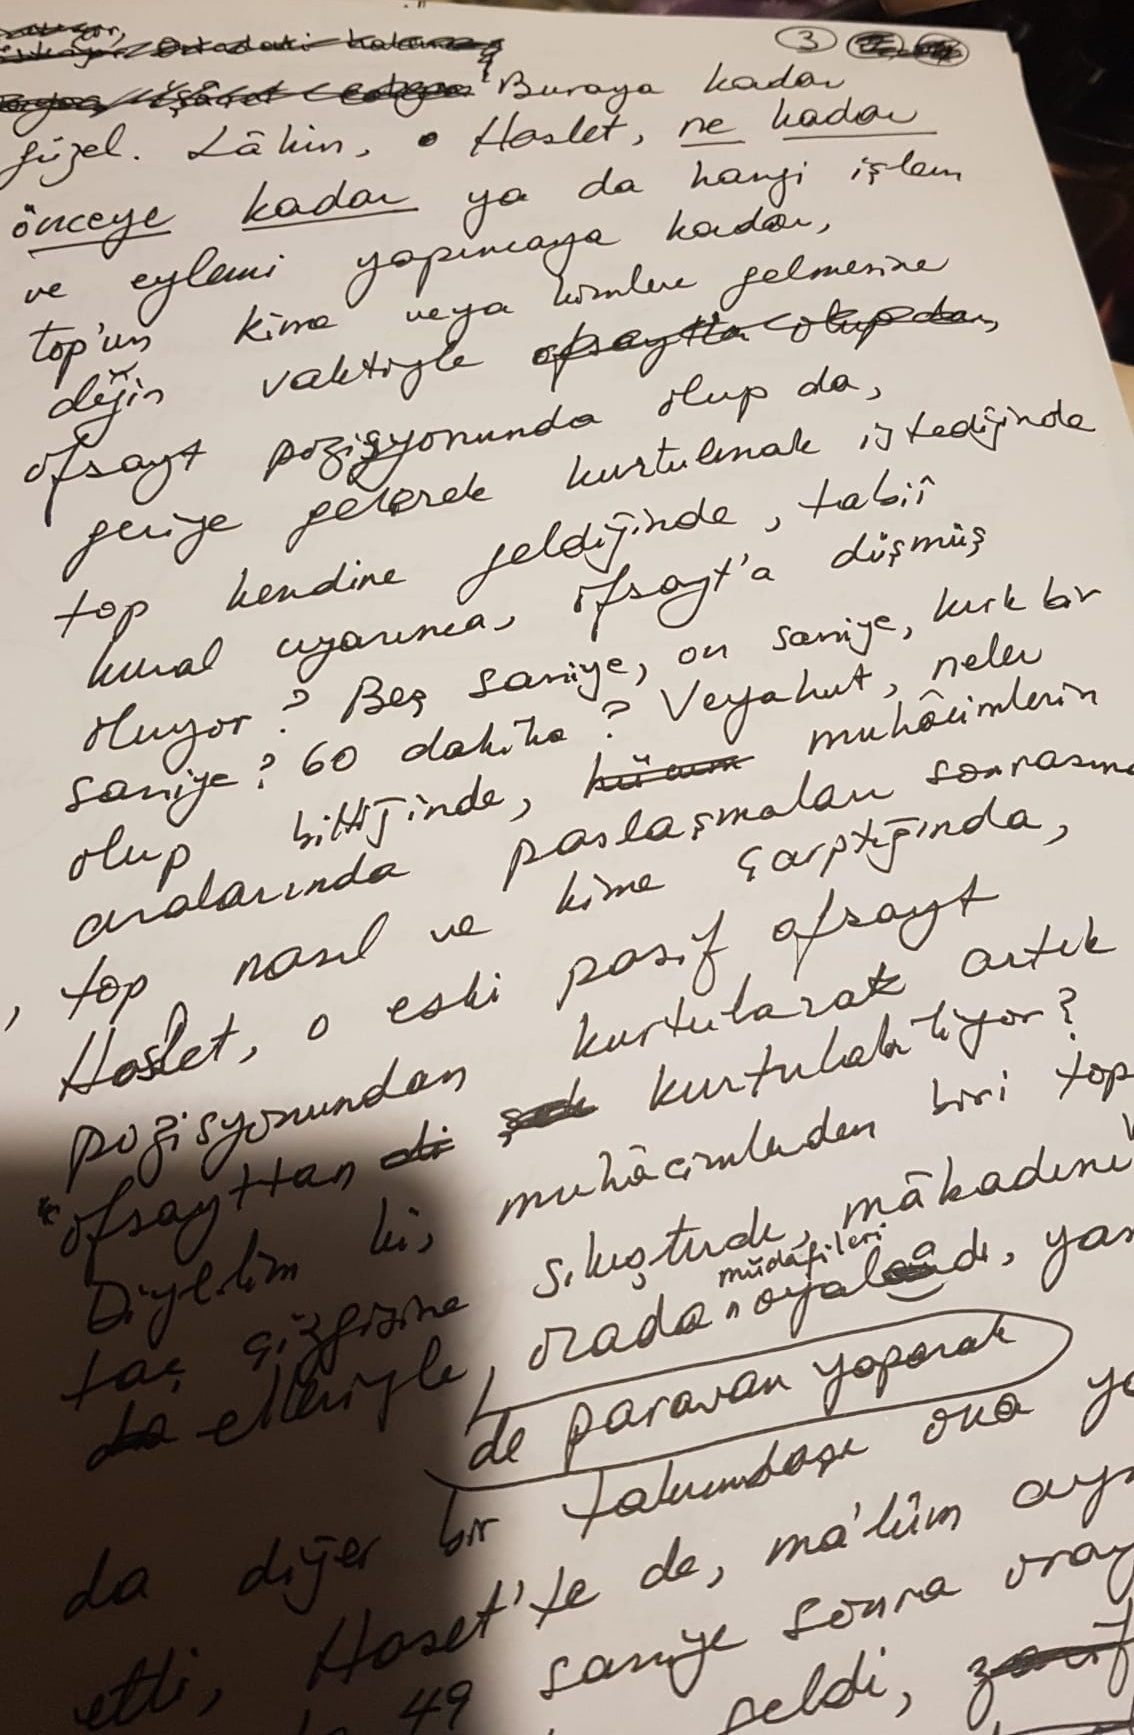 ③
Ortadaki
işâret Buraya kadar
güzel. Lâkin, • Haslet, ne kadar
önceye kadar ya da hangi işlem
ve eylemi yapıncaya kadar,
top'un kime veya kimlere gelmesine
değin vaktiyle ofsaytta olup da,
ofsayt pozisyonunda olup da,
geriye gelerek kurtulmak istediğinde
top kendine geldiğinde, tabiî
kural uyarınca, ofsayt'a düşmüş
oluyor? Beş saniye, on saniye, kırk bir
saniye? 60 dakika? Veyahut, neler
olup bittiğinde, hücum muhâcimlerin
aralarında paslaşmaları sonrasında
, top nasıl ve kime çarptığında,
Haslet, o eski pasif ofsayt
pozisyonundan kurtularak artık
"ofsayttan kurtulabiliyor?
Diyelim ki, muhâcimlerden biri top
taç çizgisine sıkıştırdı, mâkadını
da elleriyle, orada müdâfileri oyaladı, yan
de paravan yaparak
da diğer bir takımdaşı ona ya
etti, Haset'te de, ma'lûm ayn
49 saniye sonra oray
geldi,